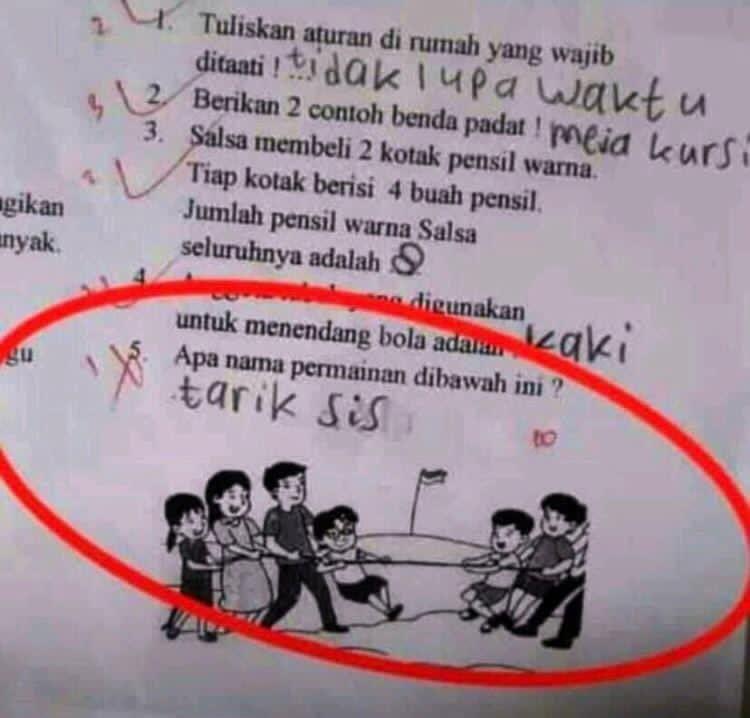 1. Tuliskan aturan di rumah yang wajib
ditaati ! tidak lupa waktu
2. Berikan 2 contoh benda padat ! meja kursi
3. Salsa membeli 2 kotak pensil warna.
Tiap kotak berisi 4 buah pensil.
Jumlah pensil warna Salsa
seluruhnya adalah 8
gikan
nyak.
4. digunakan
untuk menendang bola adalah kaki
gu
5. Apa nama permainan dibawah ini ?
tarik sis